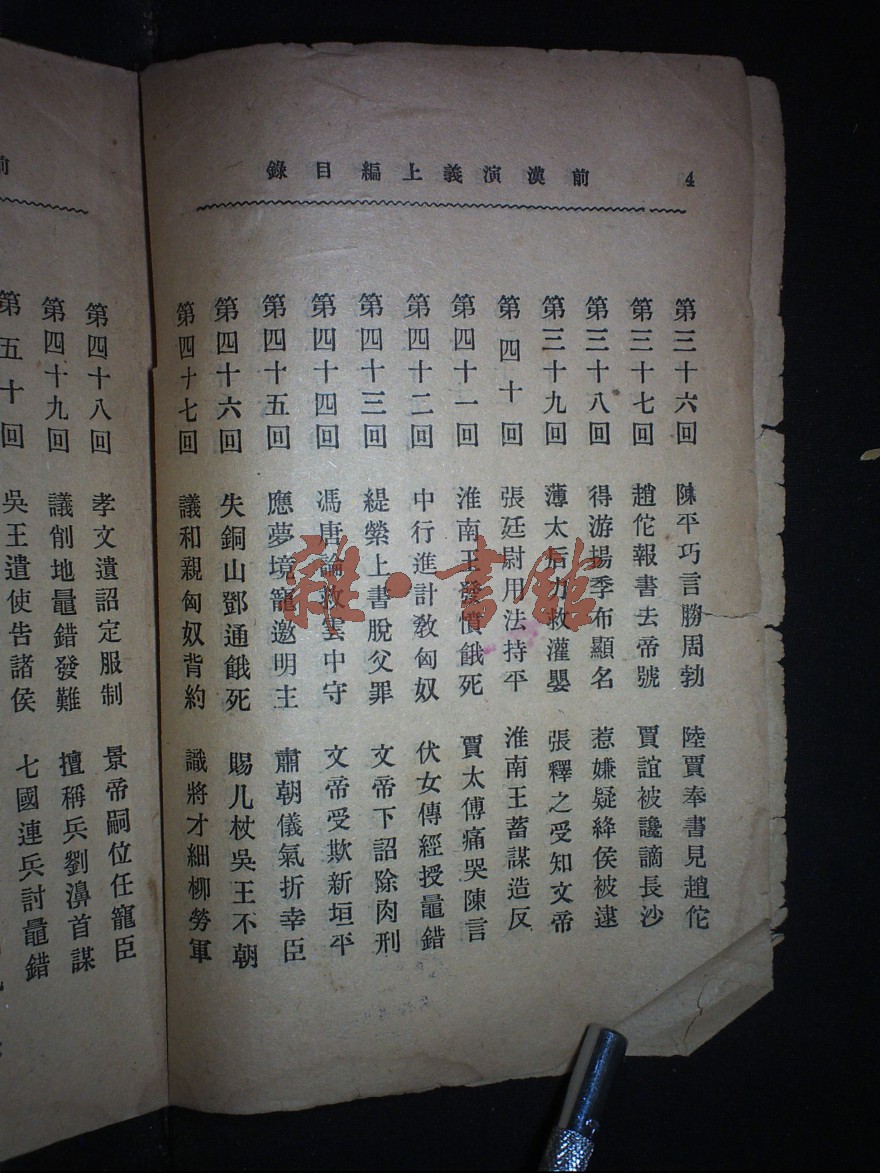 前漢演義上編目錄 4
第三十六回 陳平巧言勝周勃 陸賈奉書見趙佗
第三十七回 趙佗報書去帝號 賈誼被讒謫長沙
第三十八回 得游揚季布顯名 惹嫌疑絳侯被逮
第三十九回 薄太后力救灌嬰 張釋之受知文帝
第四十回 張廷尉用法持平 淮南王蓄謀造反
第四十一回 淮南王發憤餓死 賈太傅痛哭陳言
第四十二回 中行進計教匈奴 伏女傳經授鼂錯
第四十三回 緹縈上書脫父罪 文帝下詔除肉刑
第四十四回 馮唐論救雲中守 文帝受欺新垣平
第四十五回 應夢境寵邀明主 肅朝儀氣折幸臣
第四十六回 失銅山鄧通餓死 賜几杖吳王不朝
第四十七回 議和親匈奴背約 識將才細柳勞軍
前
第四十八回 孝文遺詔定服制 景帝嗣位任寵臣
第四十九回 議削地鼂錯發難 擅稱兵劉濞首謀
第五十回 吳王遣使告諸侯 七國連兵討鼂錯
雜·書館